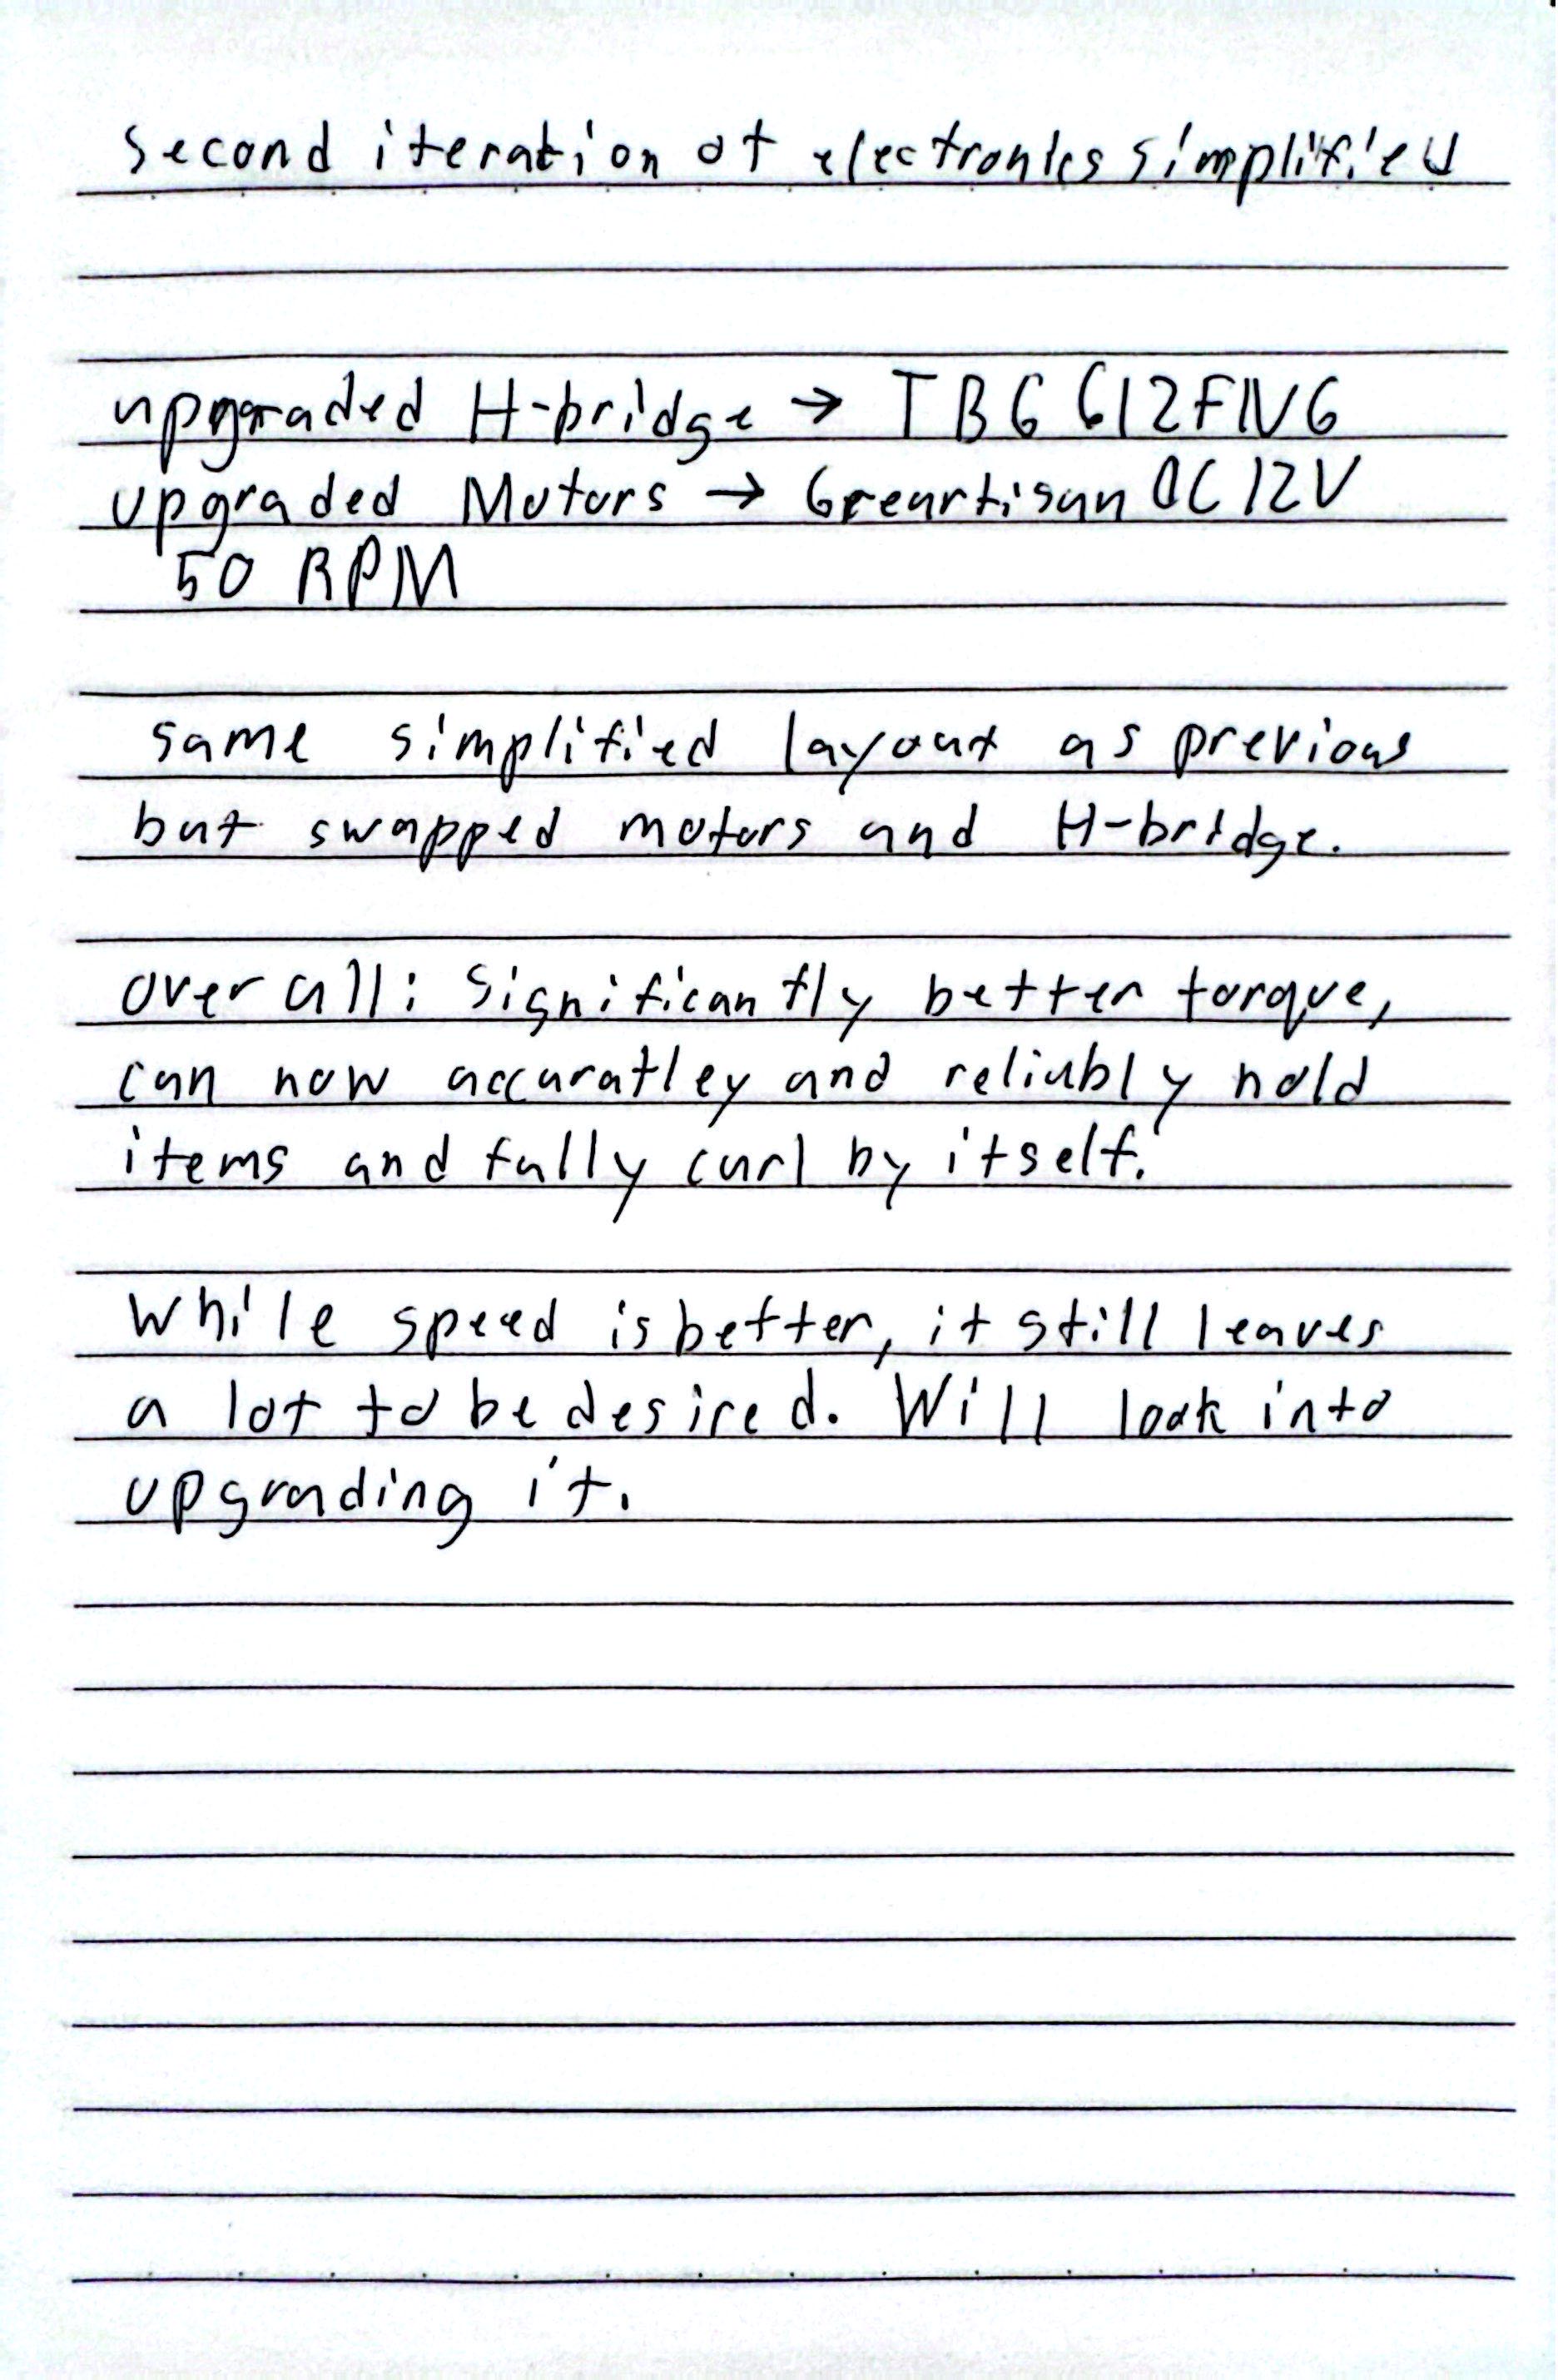 second iteration of electronics simplified
upgraded H-bridge → TB6612FNG
upgraded Motors → Greartisan DC 12V
50 RPM
same simplified layout as previous
but swapped motors and H-bridge.
overall: significantly better torque,
can now accuratley and reliably hold
items and fully curl by itself.
While speed is better, it still leaves
a lot to be desired. Will look into
upgrading it.